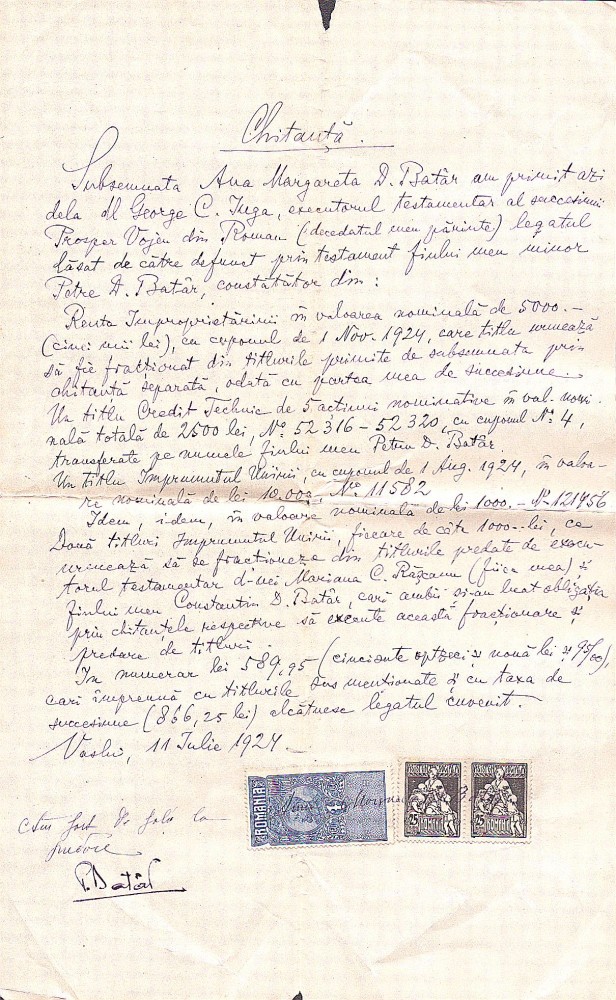 Chitanță.
Subsemnata Ana Margareta D. Batâr am primit azi
dela dl George C. Juga, executorul testamentar al succesiunii
Prosper Vojen din Roman (decedatul meu părinte) legatul
lăsat de către defunct prin testament fiului meu minor
Petre D. Batâr, constătător din:
Renta Improprietăririi în valoarea nominală de 5000.-
(cinci mii lei), cu cuponul de 1 Nov. 1924, care titlu urmează
să fie fracționat din titlurile primite de subsemnata prin
chitanță separată, odată cu partea mea de succesiune.
Un titlu Credit Technic de 5 acțiuni nominative în val. nomi-
nală totală de 2500 lei, No. 52316-52320, cu cuponul No. 4,
transferate pe numele fiului meu Petru D. Batâr.
Un titlu Imprumutul Unirii, cu cuponul de 1 Aug. 1924, în valoa-
re nominală de lei 10.000, No. 11582
Idem, idem, în valoare nominală de lei 1000.- No. 121956
Două titluri Imprumutul Unirii, fiecare de câte 1000.- lei, ce
urmează să se fracționeze din titlurile predate de execu-
torul testamentar d-nei Mariana C. (fiica mea) și
fiului meu Constantin D. Batâr, cari ambii și-au luat obligația
prin chitanțele respective să execute această fracționare și
predare de titluri.
In numerar lei 589,95 (cincisute optzeci și nouă lei și 95/00),
cari împreună cu titlurile sus menționate și cu taxa de
succesiune (866,25 lei) alcătuesc legatul cuvenit.
Vaslui, 11 Iulie 1924.
ROMANIA
25
25
Batâr